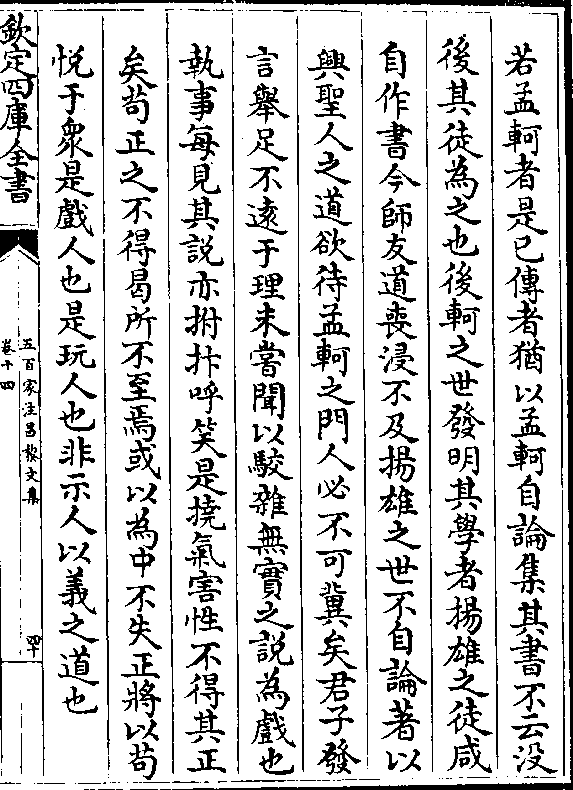 若孟軻者是已傳者猶以孟軻自論集其書不云没
後其徒為之也後軻之世發明其學者揚雄之徒咸
自作書今師友道喪浸不及揚雄之世不自論著以
興聖人之道欲待孟軻之門人必不可冀矣君子發
言舉足不遠于理未嘗聞以駮雜無實之説為戲也
執事每見其説亦拊抃呼笑是撓氣害性不得其正
矣苟正之不得曷所不至焉或以為中不失正將以苟
悦于衆是戲人也是玩人也非示人以義之道也
欽定四庫全書
五百家注昌黎文集
卷十四